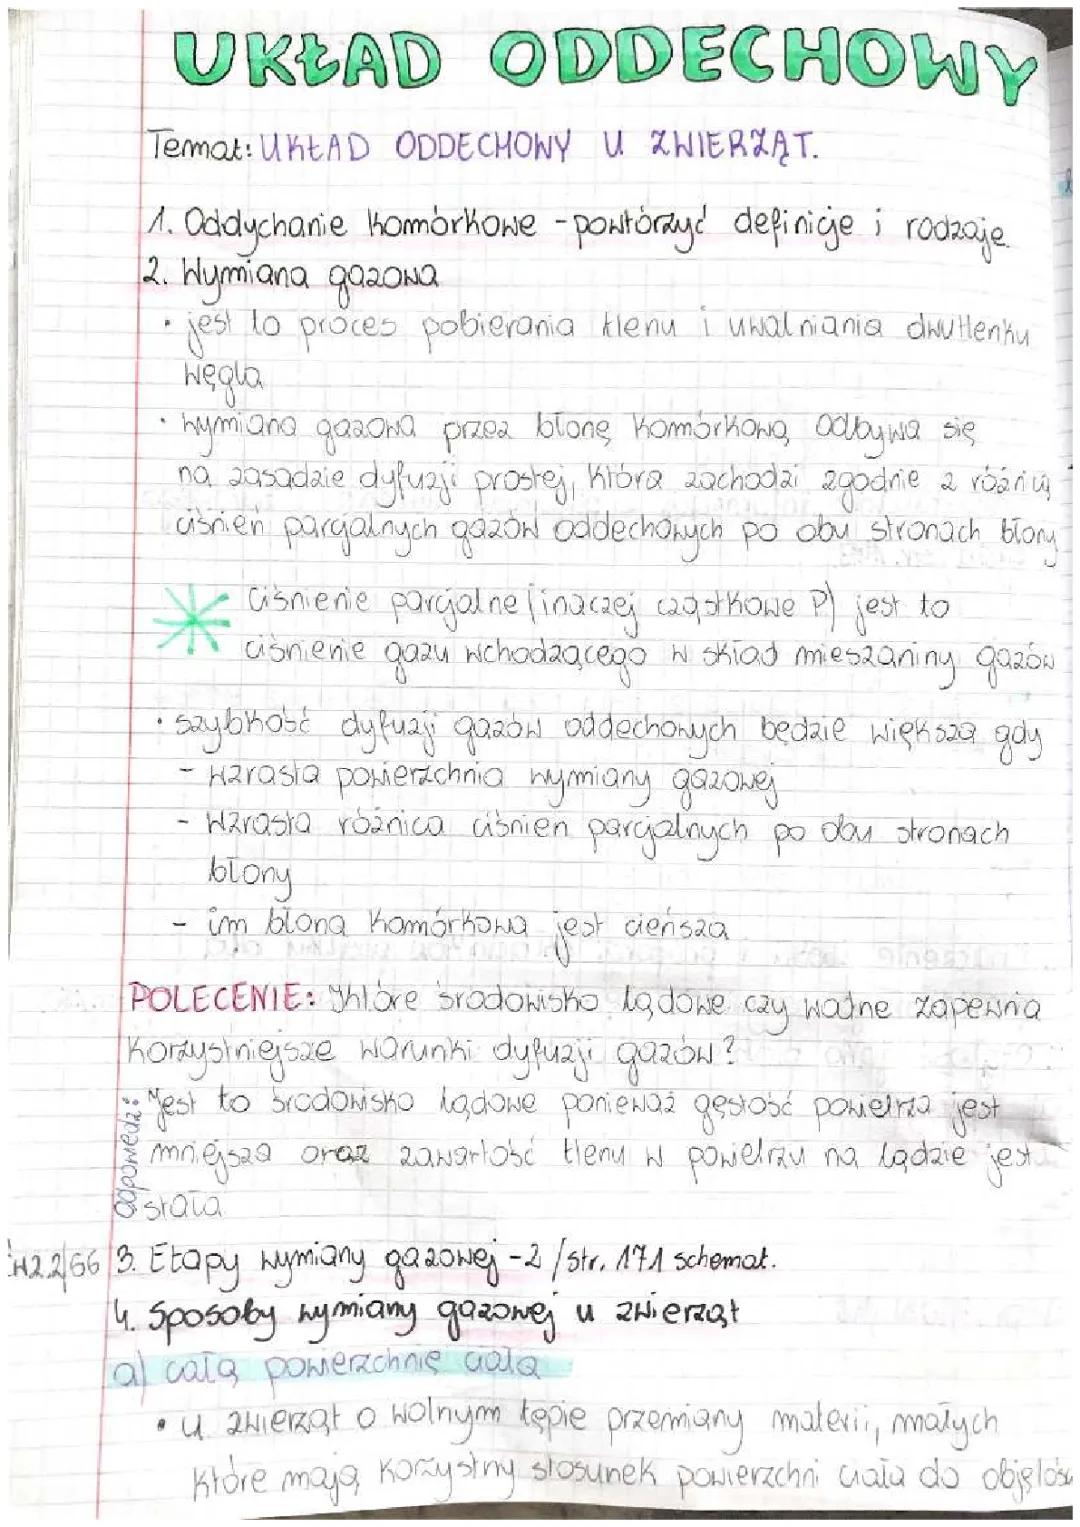 UKŁAD ODDECHOWY
Temat: UKŁAD ODDECHOWY U ZWIERZĄT.
1. Oddychanie komórkowe - powtórzyć definicje i rodzaje.
2. Wymiana gazowa
• jest to proces pobierania tlenu i uwalniania dwutlenku
węgla
• wymiana gazowa przez błonę komórkową odbywa się
na zasadzie dyfuzji prostej, która zachodzi zgodnie z różnicą
ciśnień parcjalnych gazów oddechowych po obu stronach błony
ciśnienie parcjalne (inaczej cząstkowe P) jest to
ciśnienie gazu wchodzącego w skład mieszaniny gazów
• szybkość dyfuzji gazów oddechowych będzie większa gdy
- wzrasta powierzchnia wymiany gazowej
- wzrasta różnica ciśnień parcjalnych po obu stronach
błony
- im błona komórkowa jest cieńsza
POLECENIE: Które środowisko lądowe czy wodne zapewnia
korzystniejsze warunki dyfuzji gazów?
Odpowiedź:
Jest to środowisko lądowe ponieważ gęstość powietrza jest
mniejsza oraz zawartość tlenu w powietrzu na lądzie jest
stała
3. Etapy wymiany gazowej - 2 / str. 171 schemat.
4. Sposoby wymiany gazowej u zwierząt
a) całą powierzchnię ciała
• u zwierząt o wolnym tępie przemiany materii, małych
które mają korzystny stosunek powierzchni ciała do